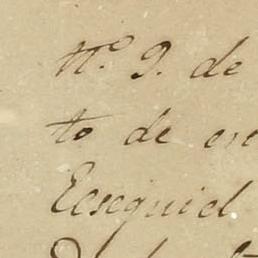 N.º 9. de
to de en
Ecsequiel